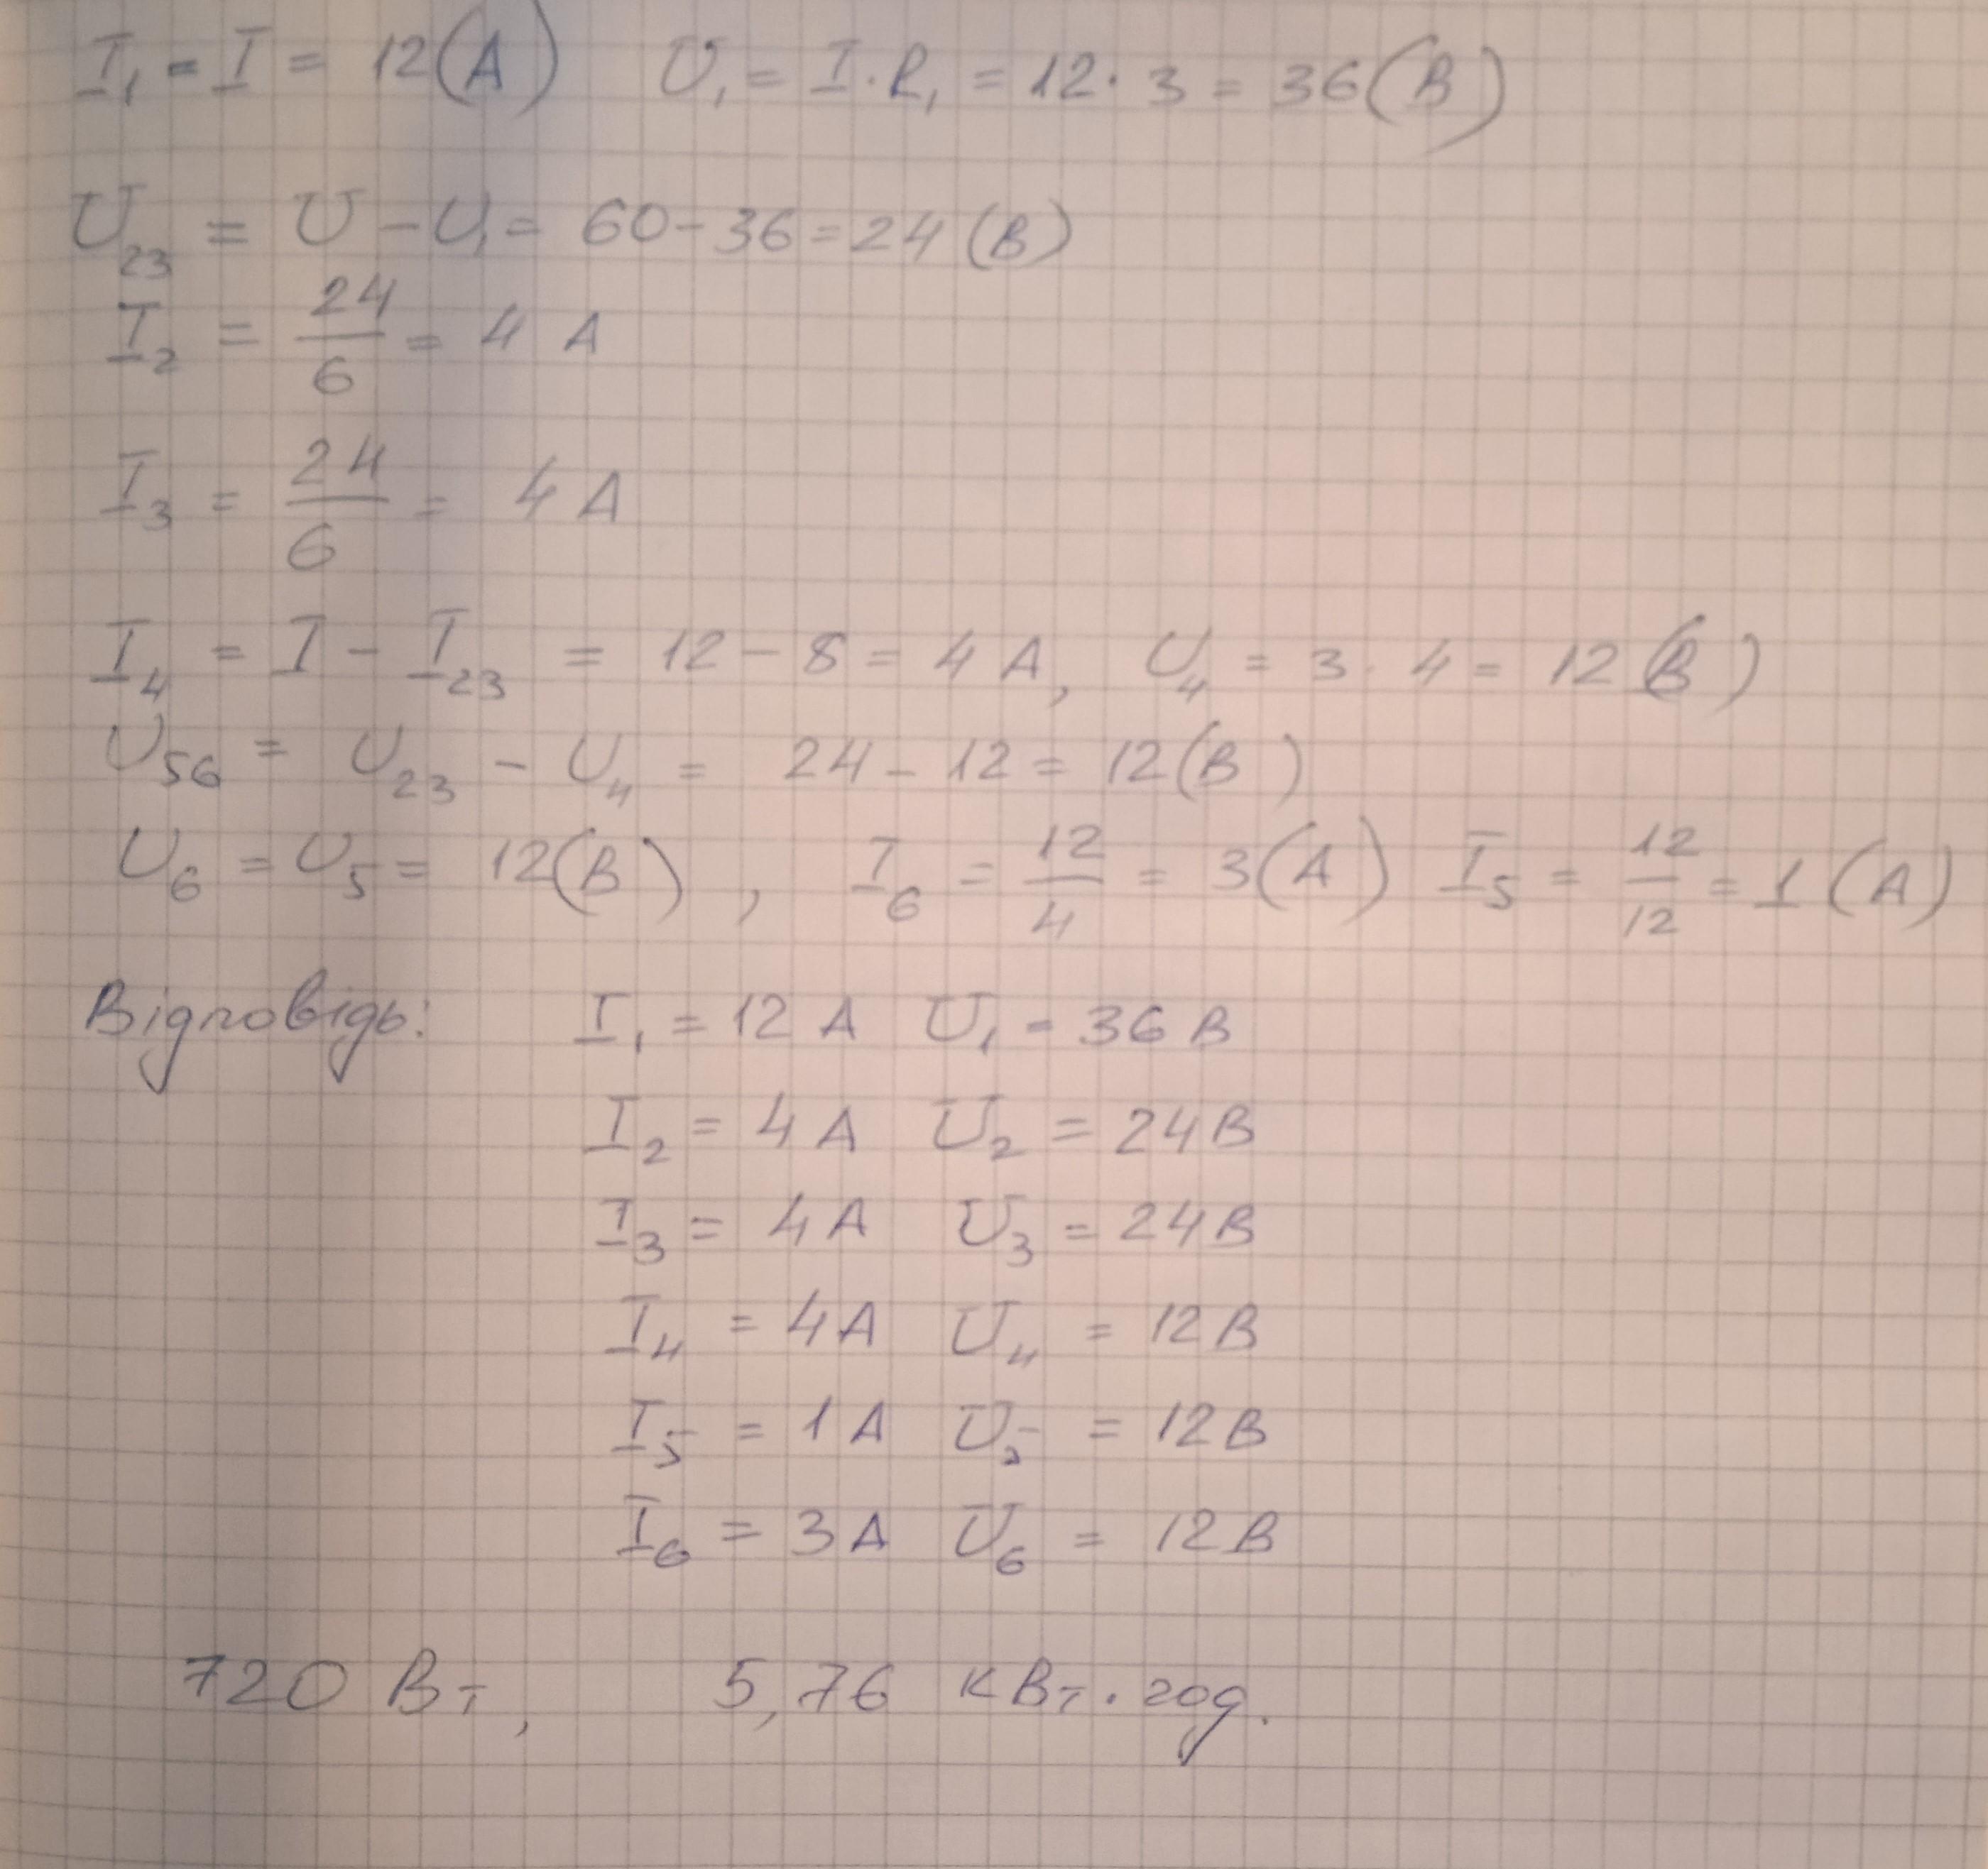 I₁ = I = 12(А) U₁ = I · R₁ = 12 · 3 = 36(В)
U₂₃ = U - U₁ = 60 - 36 = 24 (В)
I₂ = 24/6 = 4 А
I₃ = 24/6 = 4 А
I₄ = I - I₂₃ = 12 - 8 = 4 А, U₄ = 3 · 4 = 12 (В)
U₅₆ = U₂₃ - U₄ = 24 - 12 = 12(В)
U₆ = U₅ = 12(В), I₆ = 12/4 = 3(А) I₅ = 12/12 = 1 (А)
Відповідь: I₁ = 12 А U₁ = 36 В
I₂ = 4 А U₂ = 24 В
I₃ = 4 А U₃ = 24 В
I₄ = 4 А U₄ = 12 В
I₅ = 1 А U₅ = 12 В
I₆ = 3 А U₆ = 12 В
720 Вт, 5,76 кВт · год.